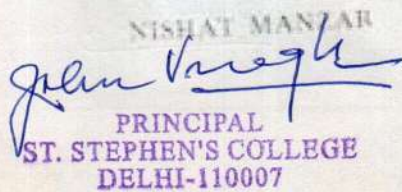 NISHAT MANZAR
John
PRINCIPAL
ST. STEPHEN'S COLLEGE
DELHI-110007